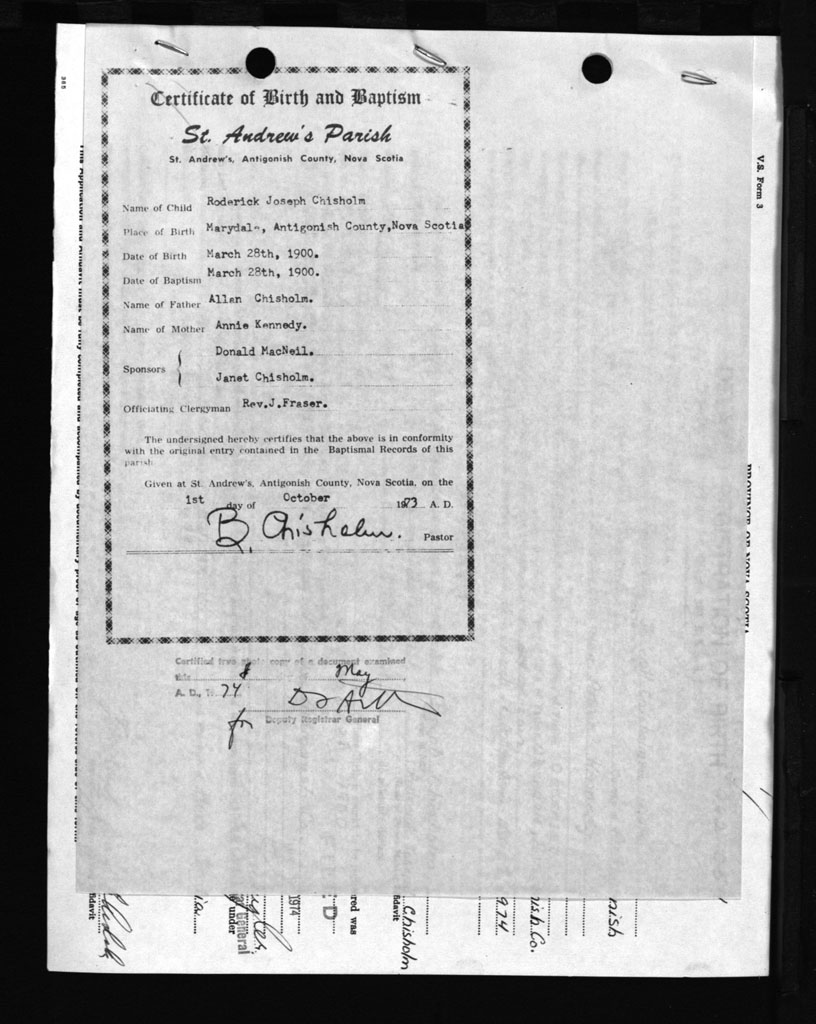 Certificate of Birth and Baptism
St. Andrew's Parish
St. Andrew's, Antigonish County, Nova Scotia
Name of Child Roderick Joseph Chisholm
Place of Birth Marydale, Antigonish County,Nova Scotia
Date of Birth March 28th, 1900.
Date of Baptism March 28th, 1900.
Name of Father Allan Chisholm.
Name of Mother Annie Kennedy.
Sponsors Donald MacNeil.
Janet Chisholm.
Officiating Clergyman Rev.J.Fraser.
The undersigned hereby certifies that the above is in conformity
with the original entry contained in the Baptismal Records of this
parish
Given at St. Andrew's, Antigonish County, Nova Scotia, on the
1st day of October 1973 A. D.
B. Chisholm. Pastor
Certified true photo copy of a document examined
this 8 May
A. D., 1974
for Deputy Registrar General
V.S. Form 3
385
PROVINCE OF NOVA SCOTIA
fidavit
under
General
1974
D
red was
Chisholm
974
nish Co.
nish